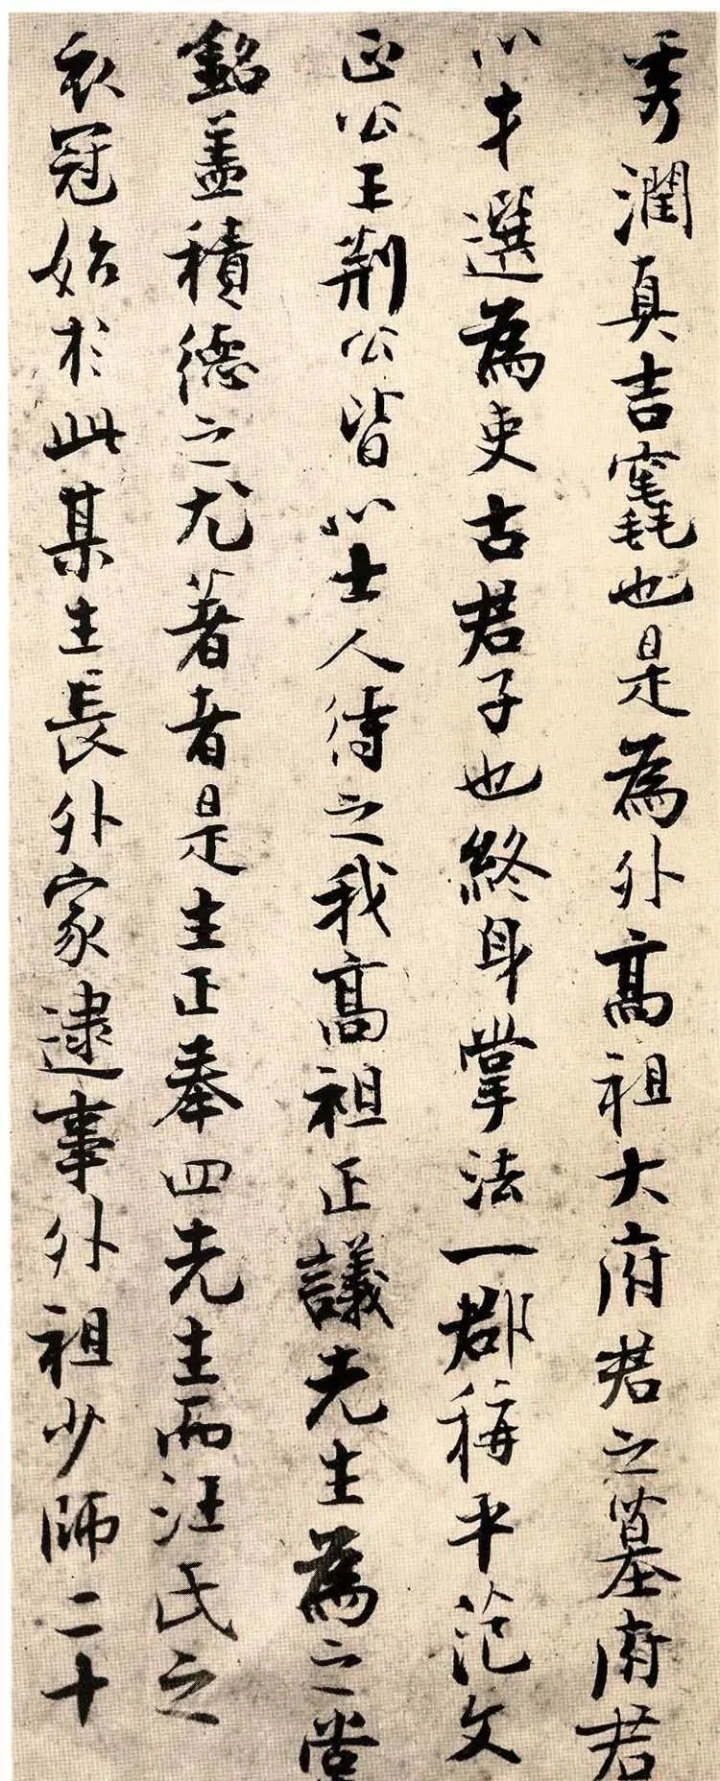 秀潤真吉竁也是為外高祖大府君之墓府君
以才選為吏古君子也終身掌法一郡稱平范文
正公王荆公皆以士人待之我高祖正議先生為之
銘盖積德之尤著者是生正奉四先生而汪氏之
衣冠始於此某生長外家逮事外祖少師二十